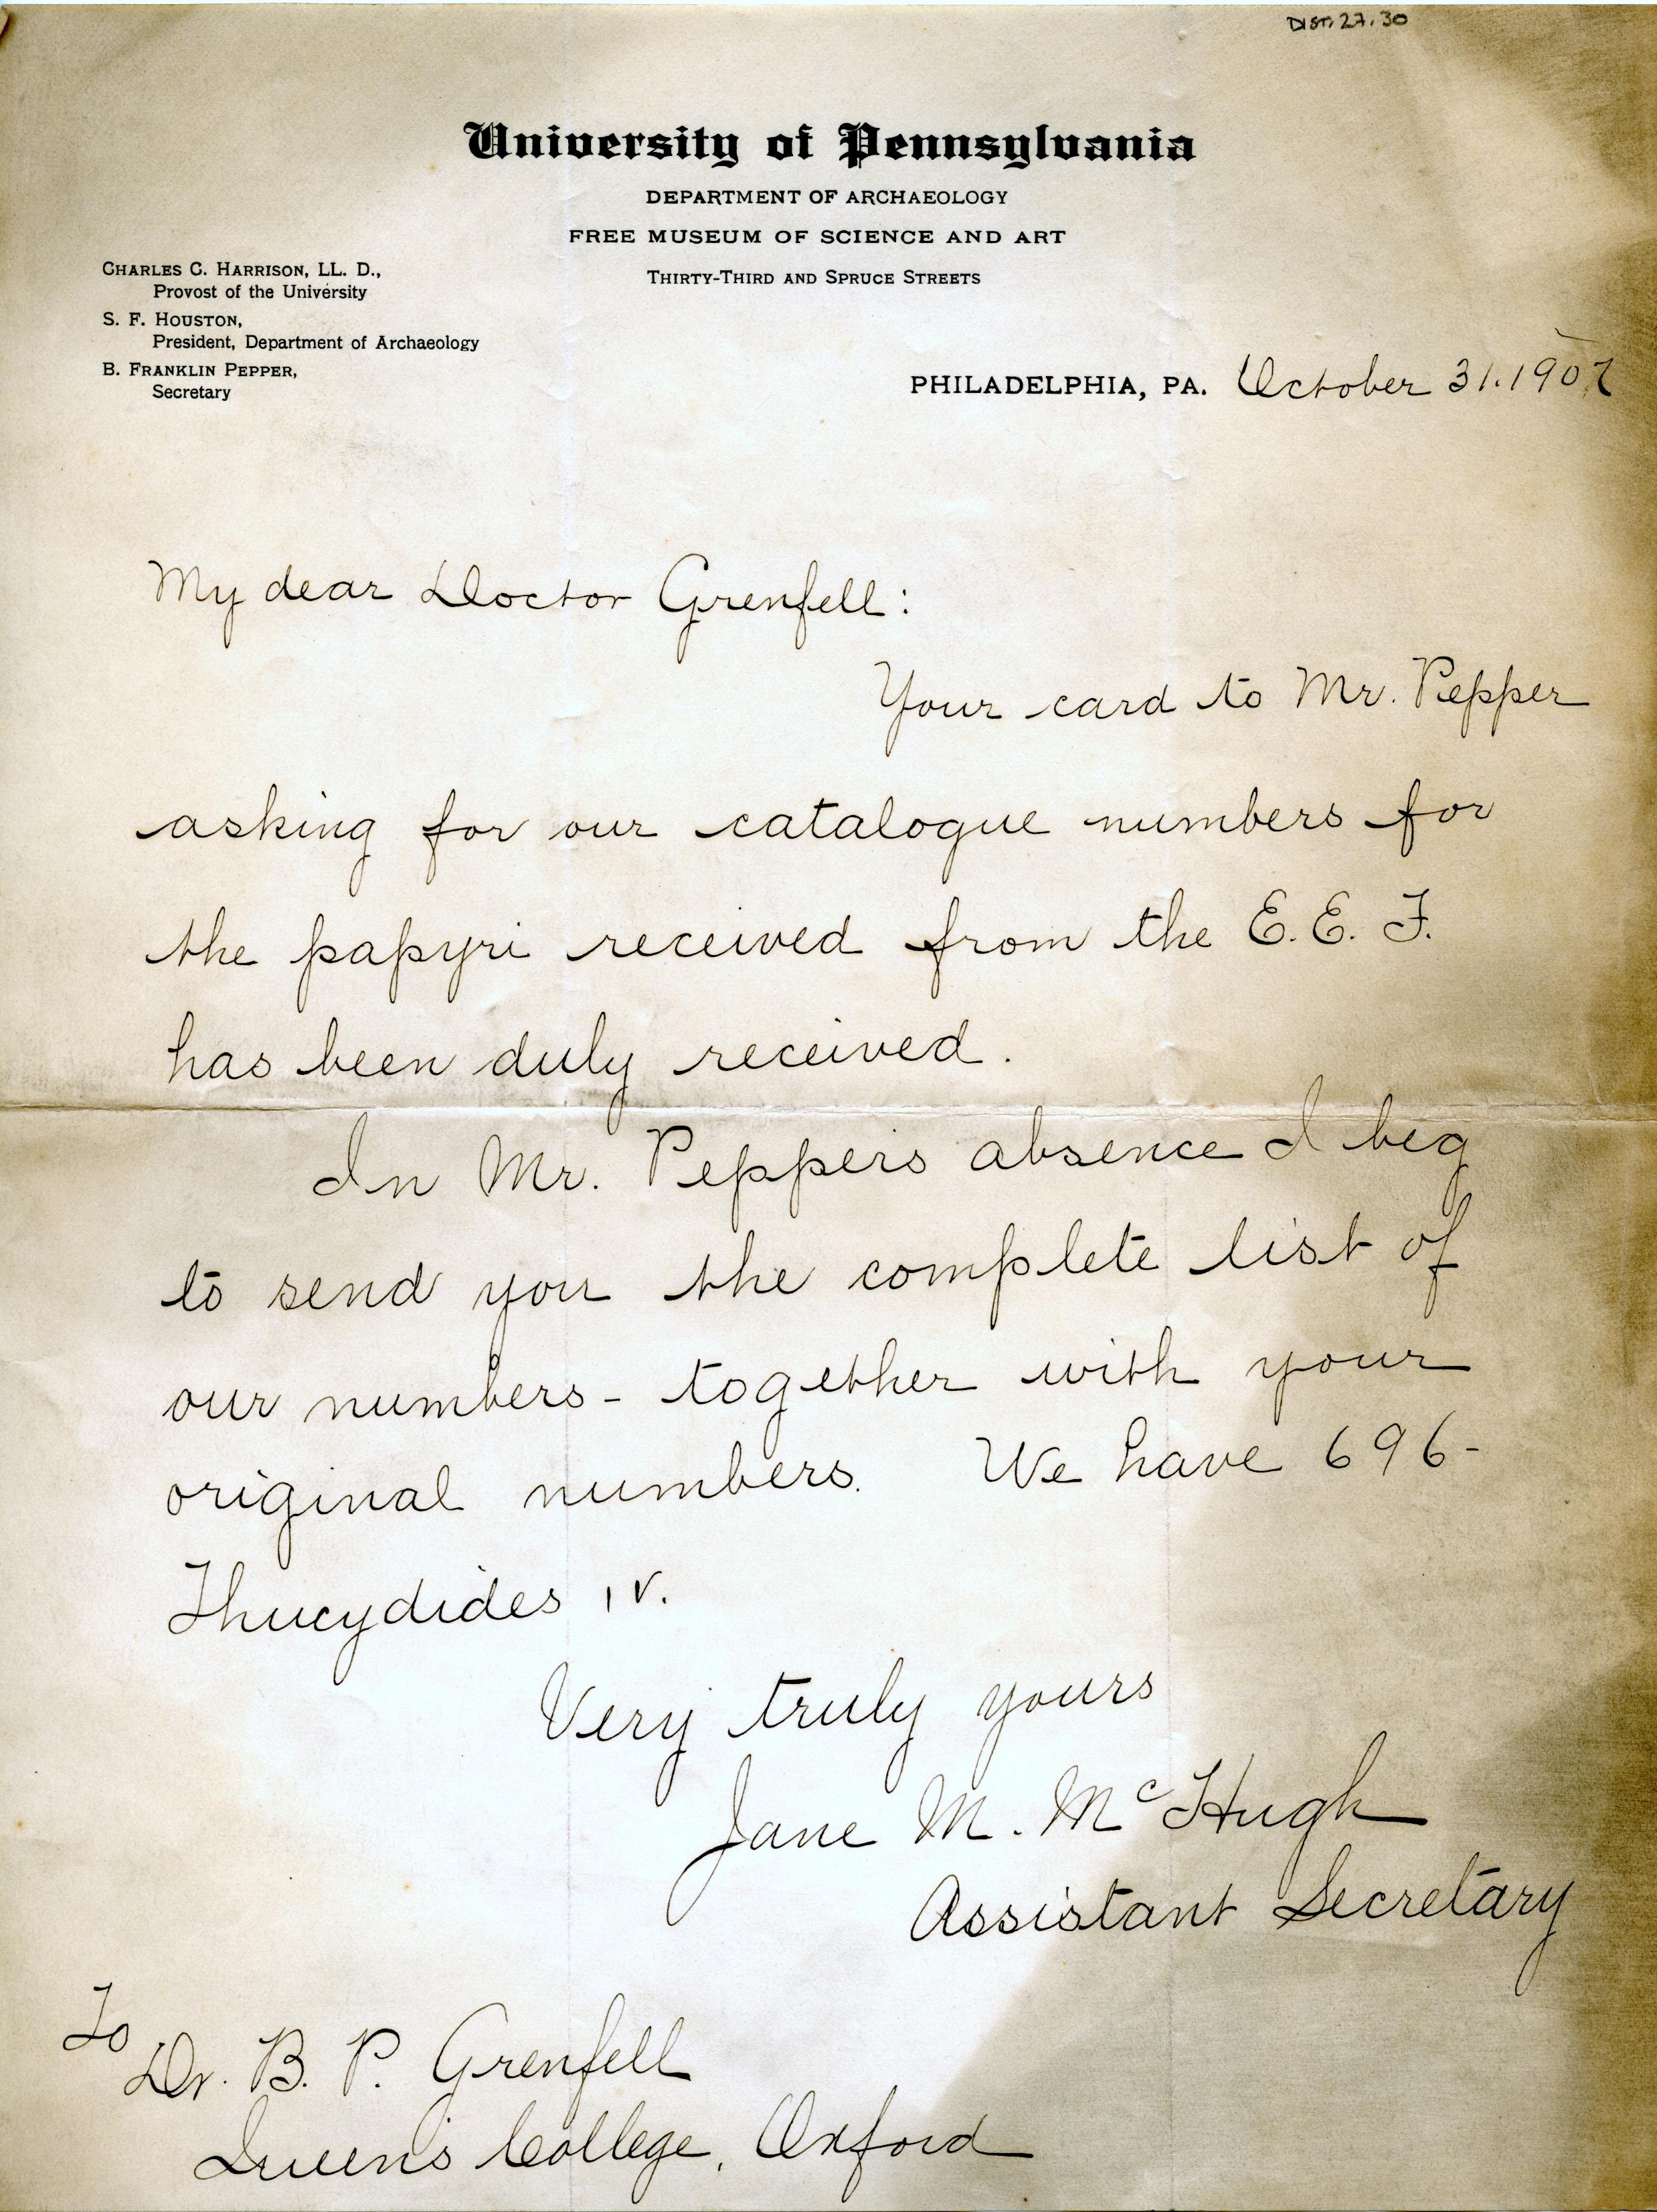 DIST. 27.30
University of Pennsylvania
DEPARTMENT OF ARCHAEOLOGY
FREE MUSEUM OF SCIENCE AND ART
THIRTY-THIRD AND SPRUCE STREETS
CHARLES C. HARRISON, LL. D.,
Provost of the University
S. F. HOUSTON,
President, Department of Archaeology
B. FRANKLIN PEPPER,
Secretary
PHILADELPHIA, PA. October 31. 1907
My dear Doctor Grenfell:
Your card to Mr. Pepper
asking for our catalogue numbers for
the papyri received from the E. E. F.
has been duly received.
In Mr. Peppers absence I beg
to send you the complete list of
our numbers - together with your
original numbers. We have 696-
Thucydides IV.
Very truly yours
Jane M. McHugh
Assistant Secretary
To
Dr. B. P. Grenfell
Queen's College, Oxford